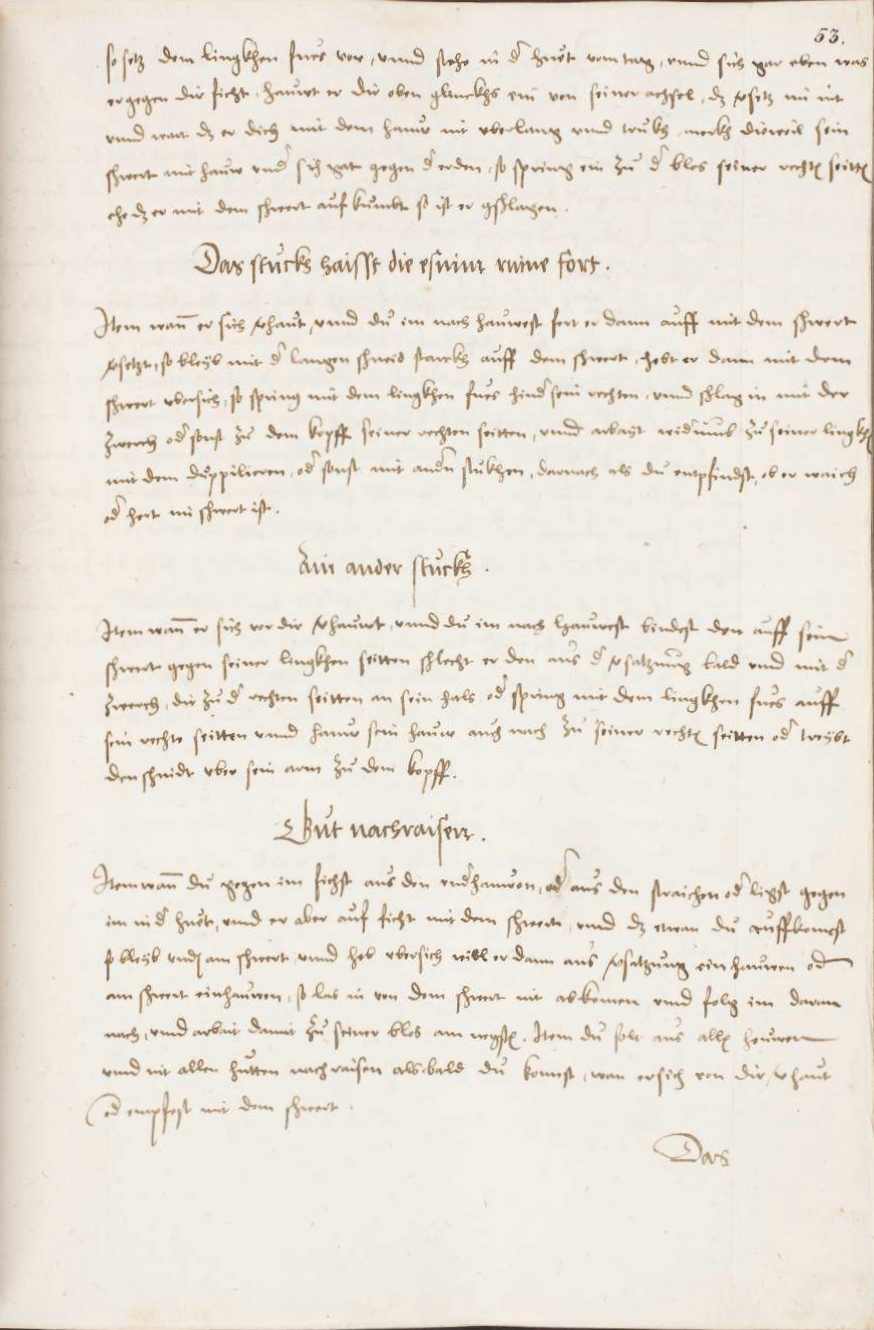 53.
so setz dem lingkhen fues vor, vnnd stehe in d' huet vom tag, vnnd sich gar eben was
er gegen dir ficht, hauwt er dir oben glinckhs ein von seiner achsel, dz vsetz im nit
vnnd wart dz er dich mit dem hauw nit vberlang vnd truckh, merckh dieweil sein
schwert mit hauw vnd' sich gat gegen d' erden, so spring ein zu d' blos seiner rechtn seittn
ehe dz er mit dem schwert auf kumbt so ist er gschlagen.
Das stuckh haisst die esuinr mine fort.
Item wan̄ er sich vhaut, vnnd du im nach hauwest fert er dann auff mit dem schwert
vsetzt, so bleyb mit d' langen schneid starckh auff dem schwert, hebt er dann mit dem
schwert vbersich, so spring mit dem lingkhen fues hind' sein rechten, vnnd schlag in mit der
zwerch od' sonst zu dem kopff seiner rechten seitten, vnnd arbayt wid'umb zu seiner lingkhn
mit dem duppiliern, od' sonst mit and'n stukhen, darnach als du entpfindst, ob er waich
od' hert im schwert ist.
Ain ander stuckh.
Item wan̄ er sich vor dir vhauwt, vnnd du im nach hauwest bindest den auff sein
schwert gegen seiner lingkhen seitten schlecht er den aus d' vsatzung bald vnd mit d'
zwerch, dir zu d' rechten seitten an sein hals od' spring mit dem lingkhen fues auff
sein rechte seitten vnnd hauw sein hauw auch nach zu seiner rechtn seitten od' treybt
den schnidt vber sein arm zu dem kopff.
Gut nachraisenn.
Item wan̄ du gegen im fichst aus den vnd'hauwen, od' aus den straichen od' ligst gegen
im in d' huet, vnnd er aber auf ficht mit dem schwert, vnnd dz etwan du auffkompst
so bleyb vnd' am schwert, vnnd heb vbersich will er dann aus vsatzung ein hauwen od'
am schwert einhauwen, so las in von dem schwert nit abkomen vnnd folg im daran
nach, vnnd arbait damit zu seiner blos am negstn. Item du solt aus alln heuwen
vnnd mit allen hutten nachraisen als bald du komst, wan er sich von dir vhaut
od' empfest mit dem schwert.
Das